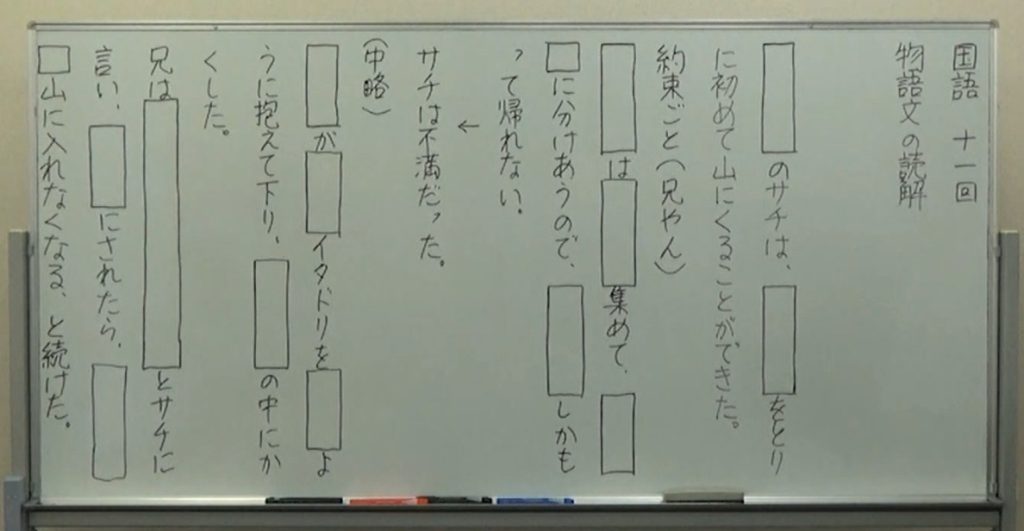 国語 十一回
物語文の読解
□のサチは、□をとり
に初めて山にくることができた。
約束ごと(兄やん)
□は□集めて、□
□に分けあうので、□しかも
って帰れない。
←
サチは不満だった。
(中略)
□が□イタドリを□よ
うに抱えて下り、□の中にか
くした。
兄は□とサチに
言い、□にされたら、□
□山に入れなくなる、と続けた。